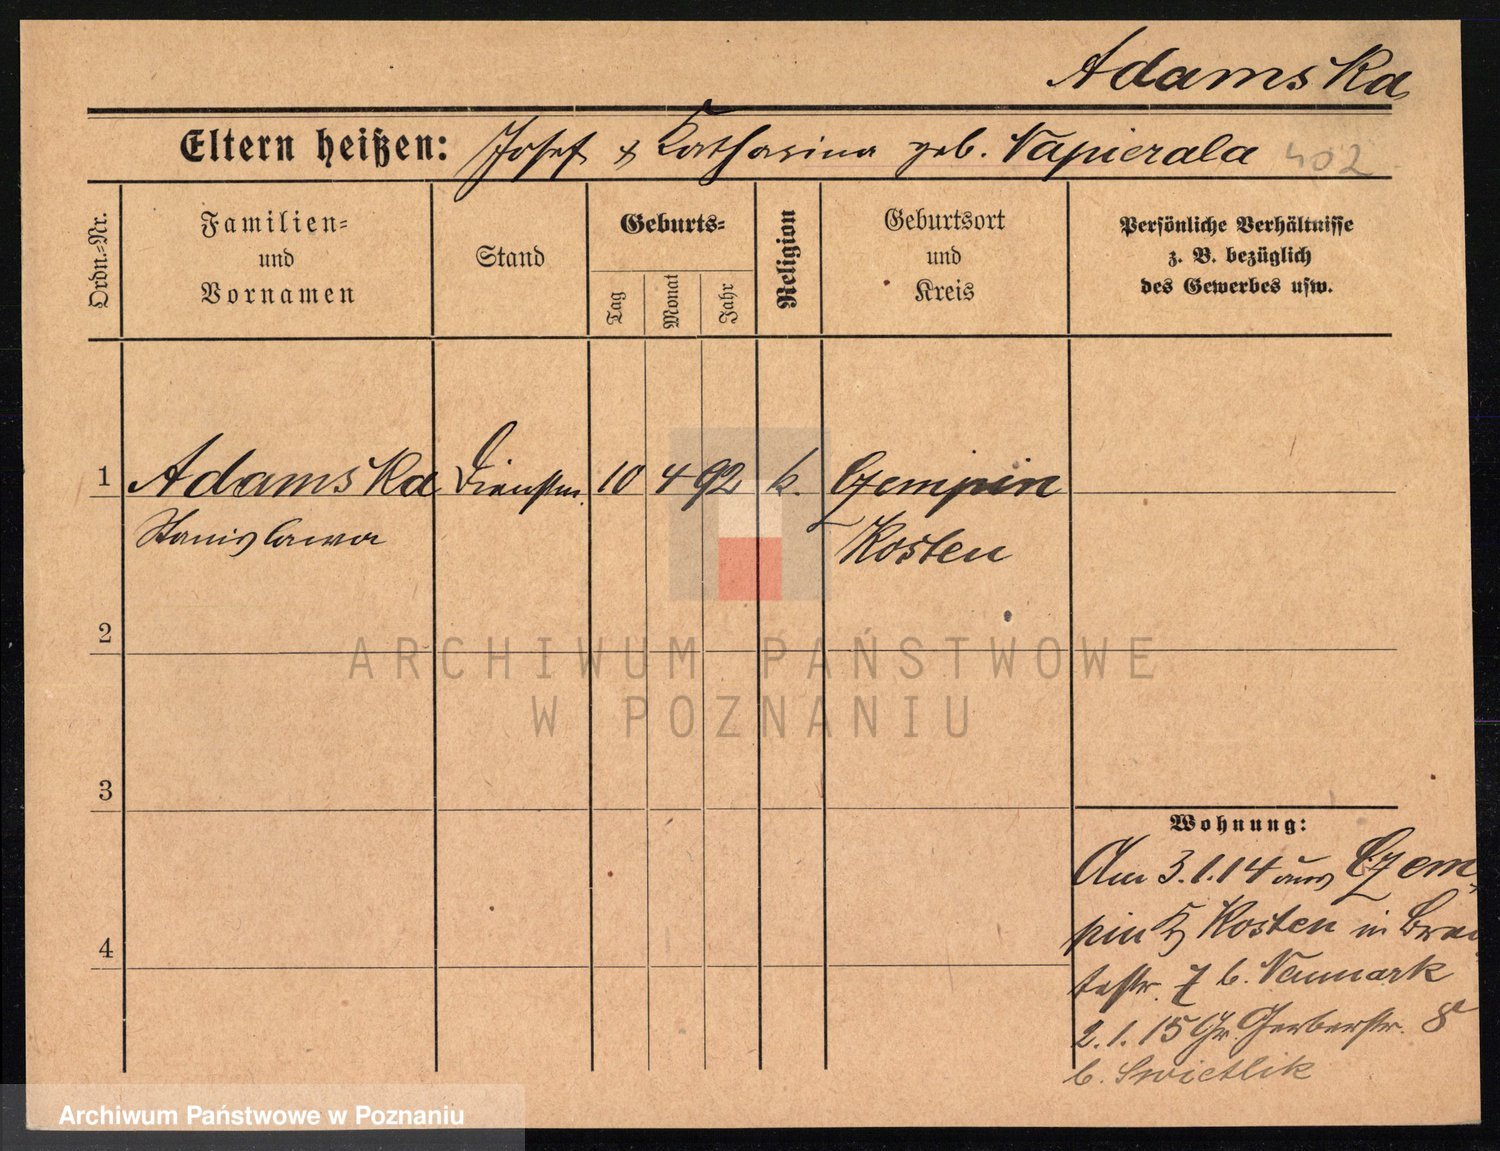 Adamska
Eltern heißen: Josef & Katharina geb. Napierala 402
Ordn.-Nr.
Familien-
und
Vornamen
Stand
Geburts-
Tag
Monat
Jahr
Religion
Geburtsort
und
Kreis
Persönliche Verhältnisse
z. B. bezüglich
des Gewerbes usw.
1 Adamska Dienstm. 10 4 92 k. Czempin
Stanislawa Kosten
2
3
4
Wohnung:
Am 3.1.14 aus Czem-
pin Kosten in Brei
testr. 7 b. Naumark
2.1.15 Gr. Gerberstr. 8
b. Swietlik
ARCHIWUM PAŃSTWOWE
W POZNANIU
Archiwum Państwowe w Poznaniu